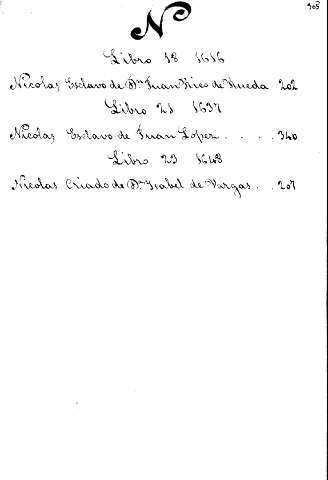 908
N
Libro 18 1616
Nicolas, Esclavo de Dn Juan Rico de Rueda 202
Libro 21 1637
Nicolas Esclavo de Juan Lopez . . . . . 340
Libro 23 1648
Nicolas Criado de Da Isabel de Vargas . . 207